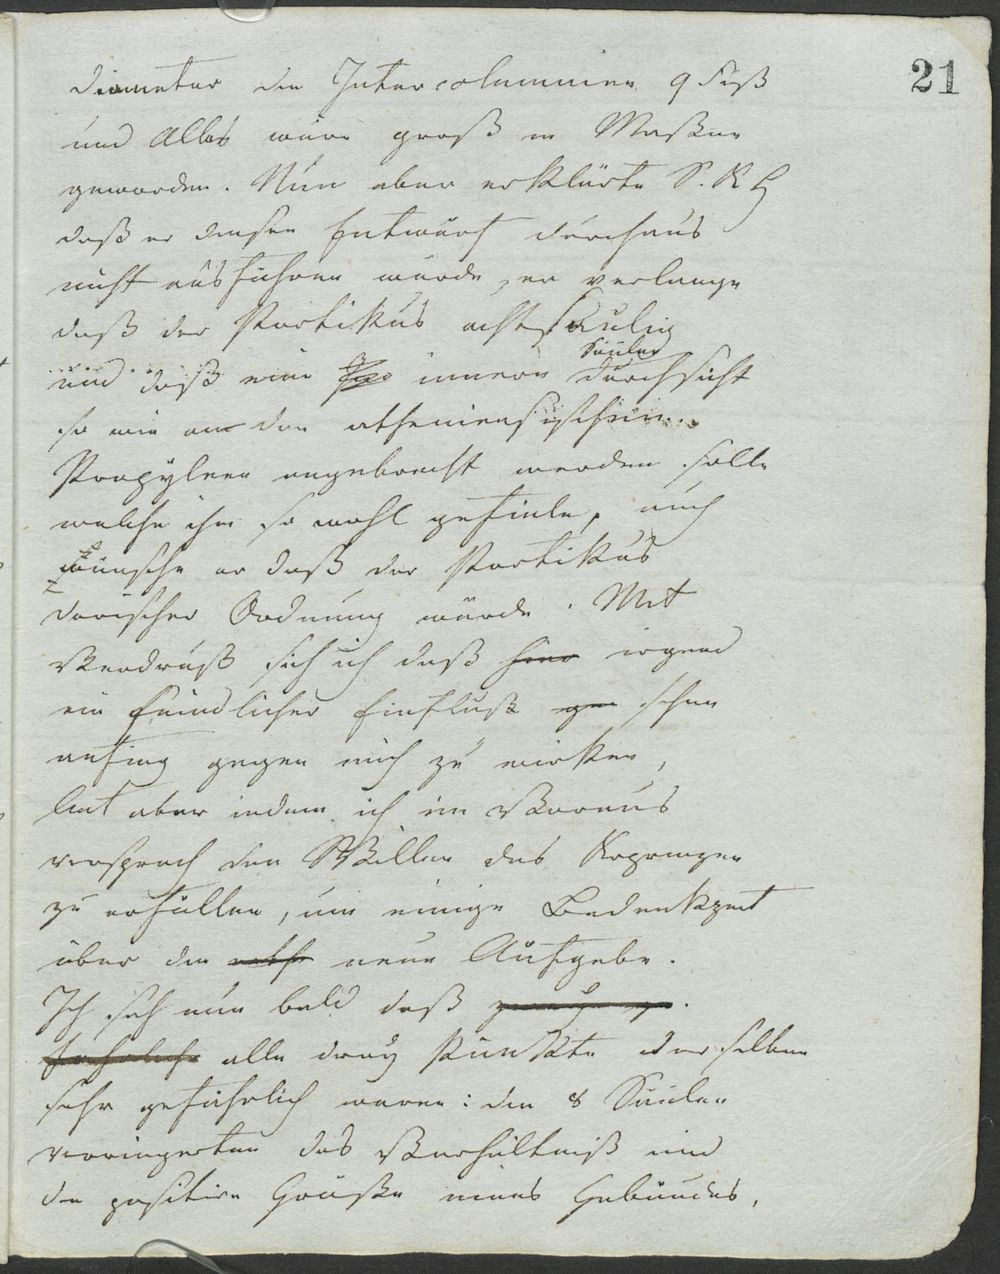 21
Diameter den Intercolumnien 9 Fuß
und Alles wäre groß in Maßen
geworden. Nun aber erklärte S. K H
daß er diesen Entwurf durchaus
nicht ausführen würde, er verlange
daß der Portikus acht säulig
Säulen
und daß eine innere durchsicht
so wie an den atheniensischen
Propyleen angebracht werden solle
welche ihm so wohl gefiele, auch
wünsche er daß der Portikus
dorischer Ordnung würde. Mit
Verdruß sah ich daß hier irgend
ein feindlicher Einfluß gen schon
anfing gegen mich zu wirken,
bat aber indem ich im Voraus
versprach den Willen des Kprinzen
zu erfüllen, um einige Bedenkzeit
über die neue Aufgabe.
Ich sah nun bald daß
alle drey Punkte derselben
sehr gefährlich waren: die 8 Säulen
verringerten das Verhältniß und
die positive Größe eines Gebäudes,